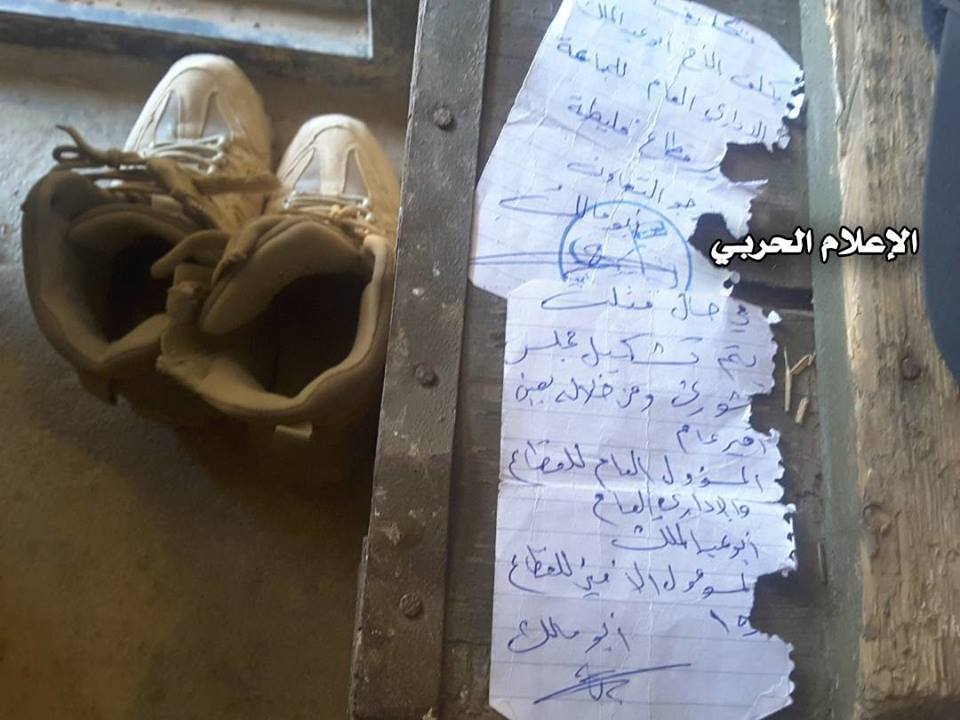 تكليف
يكلف الأخ أبو عبد الملك
الاداري العام للجماعة
قطاع فليطة
جو التعاون
أبو مالك
الإعلام الحربي
في حال قتلت
يتم تشكيل مجلس
شورى ومن خلاله يعين
أمير عام
المسؤول العام للقطاع
والإداري العام
أبو عبد الملك
المسؤول الأمني للقطاع
أبو مالك